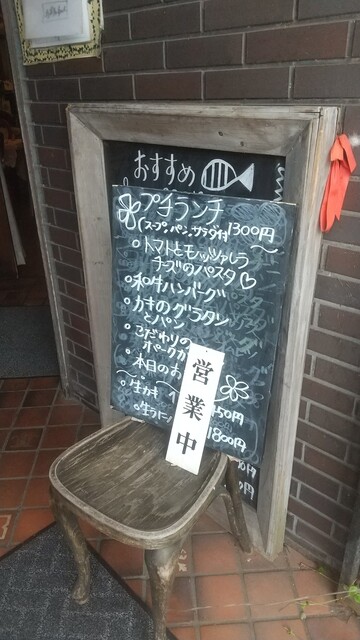 おすすめ
プチランチ
(スープ パン、サラダ付) 1300円
トマトとモッツァレラ
チーズのパスタ
和牛ハンバーグ
かきのグラタン
とパン
こだわりの
ポークカ
本日のお
生カキ
50円
生うに
1800円
営業中